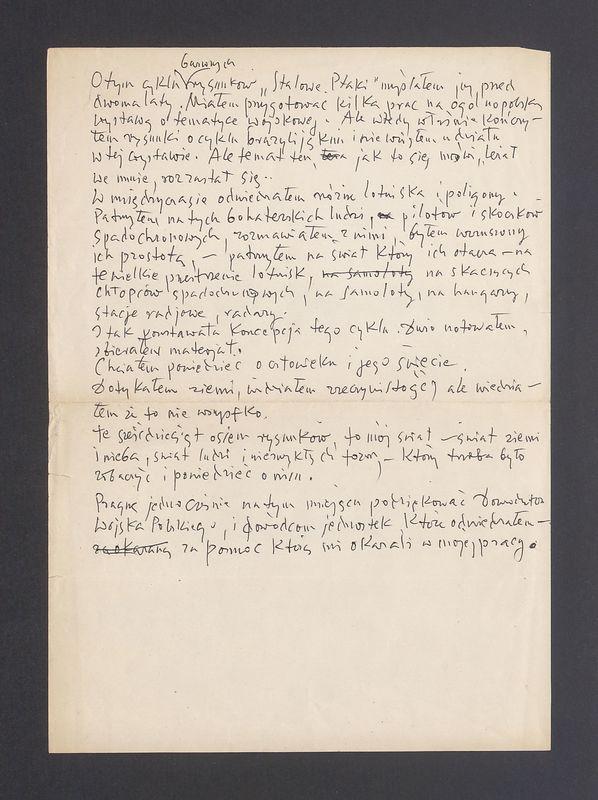 barwnych
O tym cyklu rysunków „Stalowe Ptaki" myślałem już przed
dwoma laty. Miałem przygotować kilka prac na ogólnopolską
wystawę o tematyce wojskowej. Ale wtedy właśnie kończy-
łem rysunki o cyklu brazylijskim i nie wziąłem udziału
w tej wystawie. Ale temat ten, jak to się mówi, leżał
we mnie, rozrastał się..
W międzyczasie odwiedzałem różne lotniska i poligony.
Patrzyłem na tych bohaterskich ludzi, pilotów i skoczków
spadochronowych, rozmawiałem z nimi, byłem wzruszony
ich prostotą, – patrzyłem na świat który ich otacza – na
te wielkie przestrzenie lotnisk, na samoloty na skaczących
chłopców spadochronowych, na samoloty, na hangary,
stacje radjowe, radary.
I tak powstawała koncepcja tego cyklu. Dużo notowałem,
zbierałem materjał.
Chciałem powiedzieć o człowieku i jego świecie.
Dotykałem ziemi, widziałem rzeczywistość, ale wiedzia-
łem że to nie wszystko.
Te sześćdziesiąt osiem rysunków, to mój świat – świat ziemi
i nieba, świat ludzi i niezwykłych form, – który trzeba było
zobaczyć i powiedzieć o nim.
Pragnę jednocześnie na tym miejscu podziękować Dowództwu
Wojska Polskiego, i dowódcom jednostek które odwiedzałem –
za okazaną za pomoc którą mi okazali w mojej pracy.